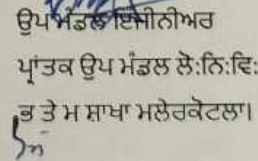 ਉਪ ਮੰਡਲ ਇੰਜੀਨੀਅਰ
ਪ੍ਰਾਂਤਕ ਉਪ ਮੰਡਲ ਲੋ:ਨਿ:ਵਿ:
ਭ ਤੇ ਮ ਸ਼ਾਖਾ ਮਲੇਰਕੋਟਲਾ।